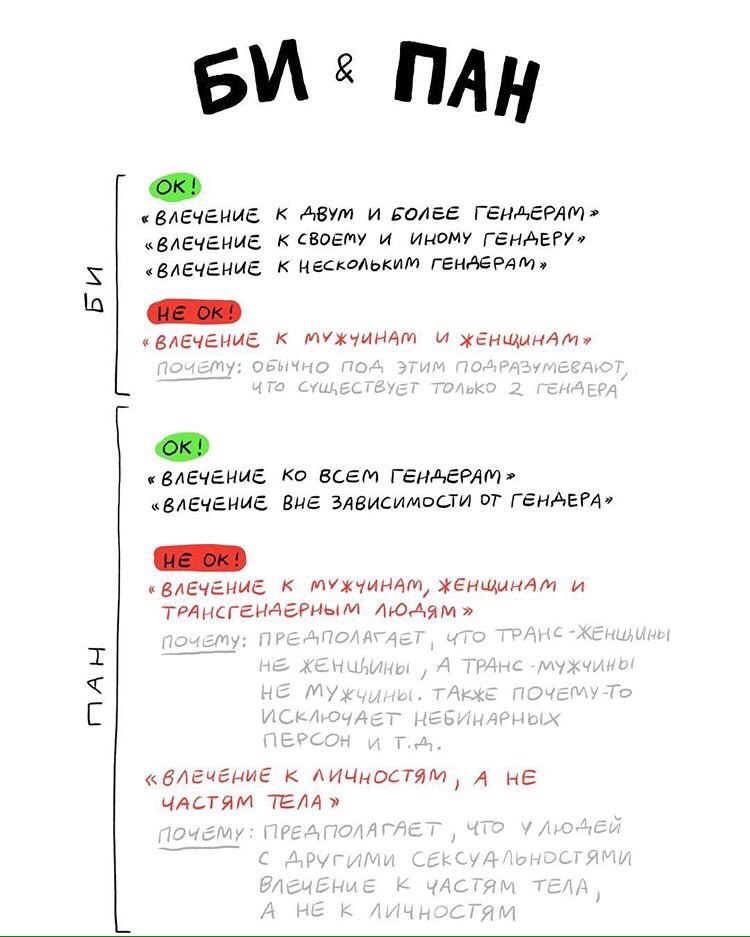 БИ & ПАН
БИ
ОК!
«ВЛЕЧЕНИЕ К ДВУМ И БОЛЕЕ ГЕНДЕРАМ»
«ВЛЕЧЕНИЕ К СВОЕМУ И ИНОМУ ГЕНДЕРУ»
«ВЛЕЧЕНИЕ К НЕСКОЛЬКИМ ГЕНДЕРАМ»
НЕ ОК!
«ВЛЕЧЕНИЕ К МУЖЧИНАМ И ЖЕНЩИНАМ»
ПОЧЕМУ: ОБЫЧНО ПОД ЭТИМ ПОДРАЗУМЕВАЮТ,
ЧТО СУЩЕСТВУЕТ ТОЛЬКО 2 ГЕНДЕРА
ПАН
ОК!
«ВЛЕЧЕНИЕ КО ВСЕМ ГЕНДЕРАМ»
«ВЛЕЧЕНИЕ ВНЕ ЗАВИСИМОСТИ ОТ ГЕНДЕРА»
НЕ ОК!
«ВЛЕЧЕНИЕ К МУЖЧИНАМ, ЖЕНЩИНАМ И
ТРАНСГЕНДЕРНЫМ ЛЮДЯМ»
ПОЧЕМУ: ПРЕДПОЛАГАЕТ, ЧТО ТРАНС-ЖЕНЩИНЫ
НЕ ЖЕНЩИНЫ, А ТРАНС-МУЖЧИНЫ
НЕ МУЖЧИНЫ. ТАКЖЕ ПОЧЕМУ-ТО
ИСКЛЮЧАЕТ НЕБИНАРНЫХ
ПЕРСОН И Т.Д.
«ВЛЕЧЕНИЕ К ЛИЧНОСТЯМ, А НЕ
ЧАСТЯМ ТЕЛА»
ПОЧЕМУ: ПРЕДПОЛАГАЕТ, ЧТО У ЛЮДЕЙ
С ДРУГИМИ СЕКСУАЛЬНОСТЯМИ
ВЛЕЧЕНИЕ К ЧАСТЯМ ТЕЛА,
А НЕ К ЛИЧНОСТЯМ